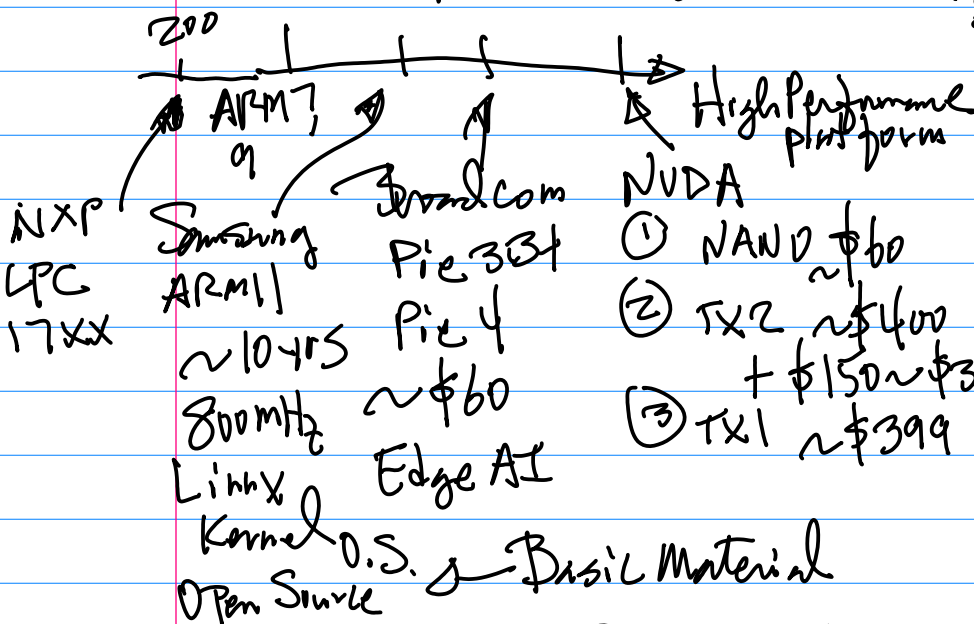 200
ARM7,
9
High Performance
platform
NXP
LPC
17XX
Samsung
ARM11
~10yrs
800mHz
Linnx
Kernel
O.S.
Open Source
Broadcom
Pie 3B+
Pie 4
~$60
Edge AI
Basic Material
NVDA
① NANO ~$60
② TX2 ~$400
+ $150~$3
③ TX1 ~$399